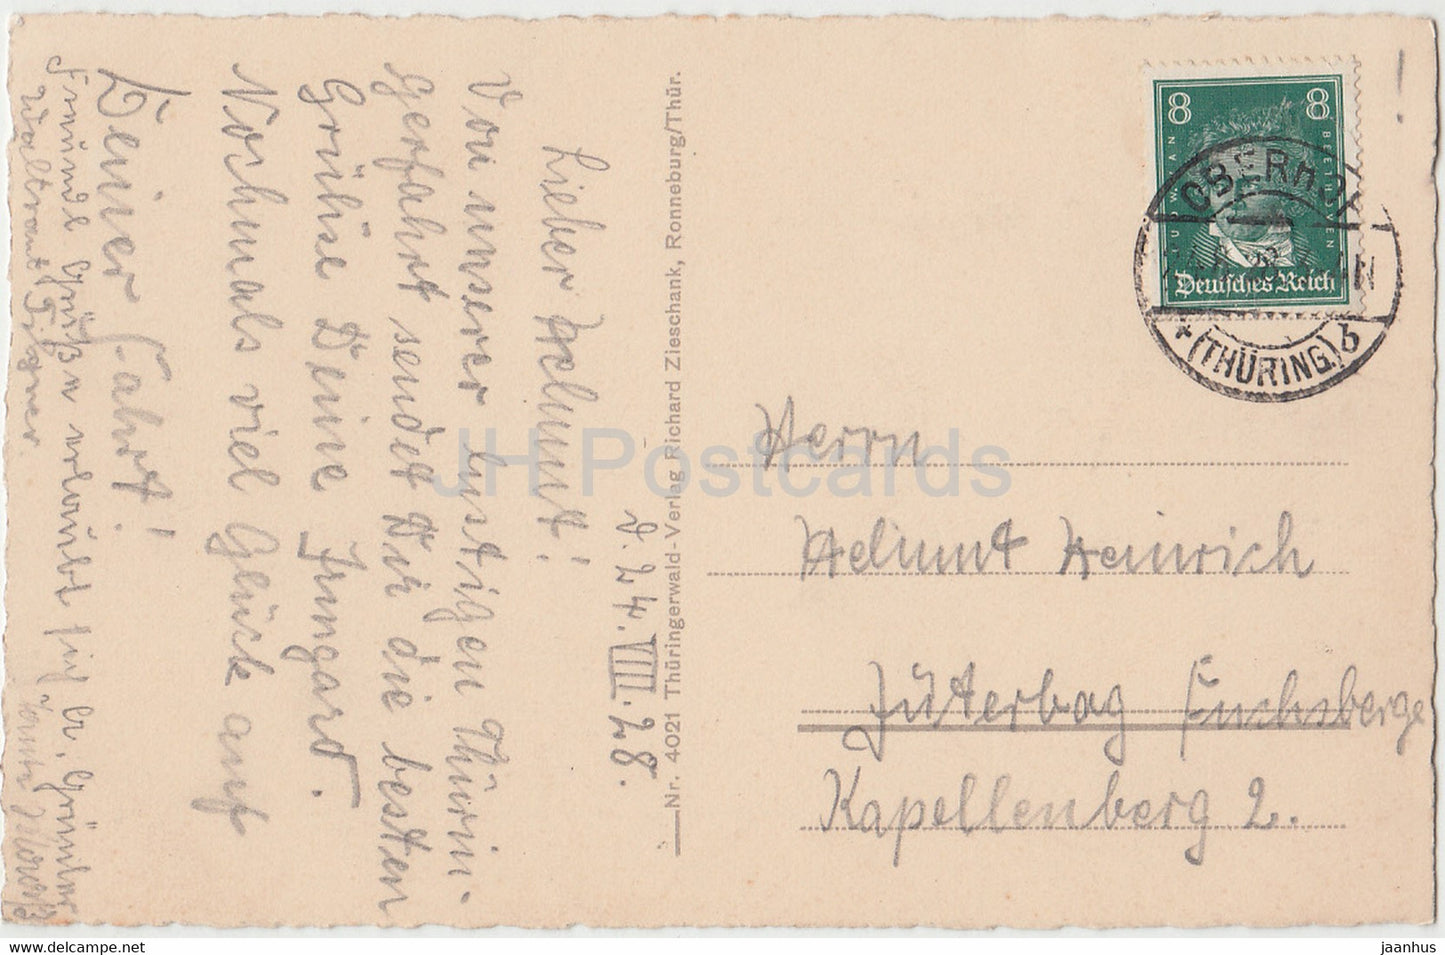 d. 24. VIII. 28.
Lieber Helmut!
Von unserer lustigen Thürin-
gerfahrt sendet Dir die besten
Grüße Deine Irmgard.
Nochmals viel Glück auf
Deiner Fahrt!
Freundl. Grüße erlaubt sich
Waltraut Tigner
Nr. 4021 Thüringerwald-Verlag Richard Zieschank, Ronneburg/Thür.
8 8
BEETHOVEN
Deutsches Reich
OBERHO
(THÜRING.) b
Herrn
Helmut Heinrich
Jüterbog Fuchsberge
Kapellenberg 2.
JH Postcards
www.delcampe.net
jaanhus